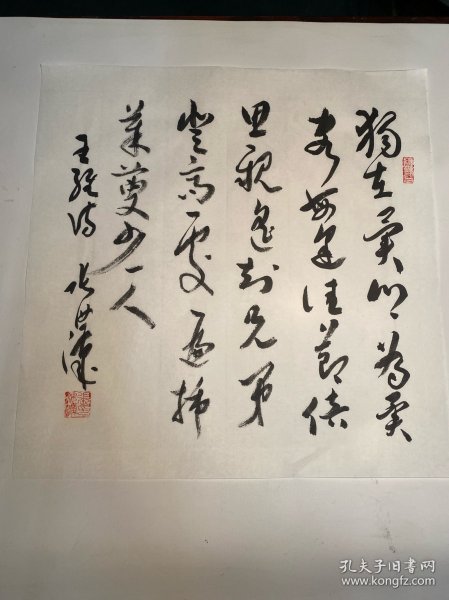 獨在異鄉為異
客每逢佳節倍
思親遙知兄弟
登高處遍插
茱萸少一人
王維詩
孔夫子旧书网
www.kongfz.com